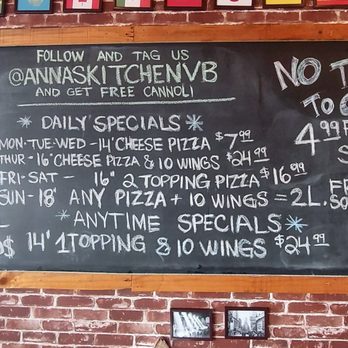 FOLLOW AND TAG US
@ANNASKITCHENVB
AND GET FREE CANNOLI
DAILY SPECIALS
MON-TUE-WED-14' CHEESE PIZZA $7.99
THUR-16" CHEESE PIZZA & 10 WINGS $24.99
FRI-SAT- 16" 2 TOPPING PIZZA $16.99
SUN-18" ANY PIZZA + 10 WINGS = 2L.
ANYTIME SPECIALS
14" 1 TOPPING & 10 WINGS $24.99
NO
TO
4.99